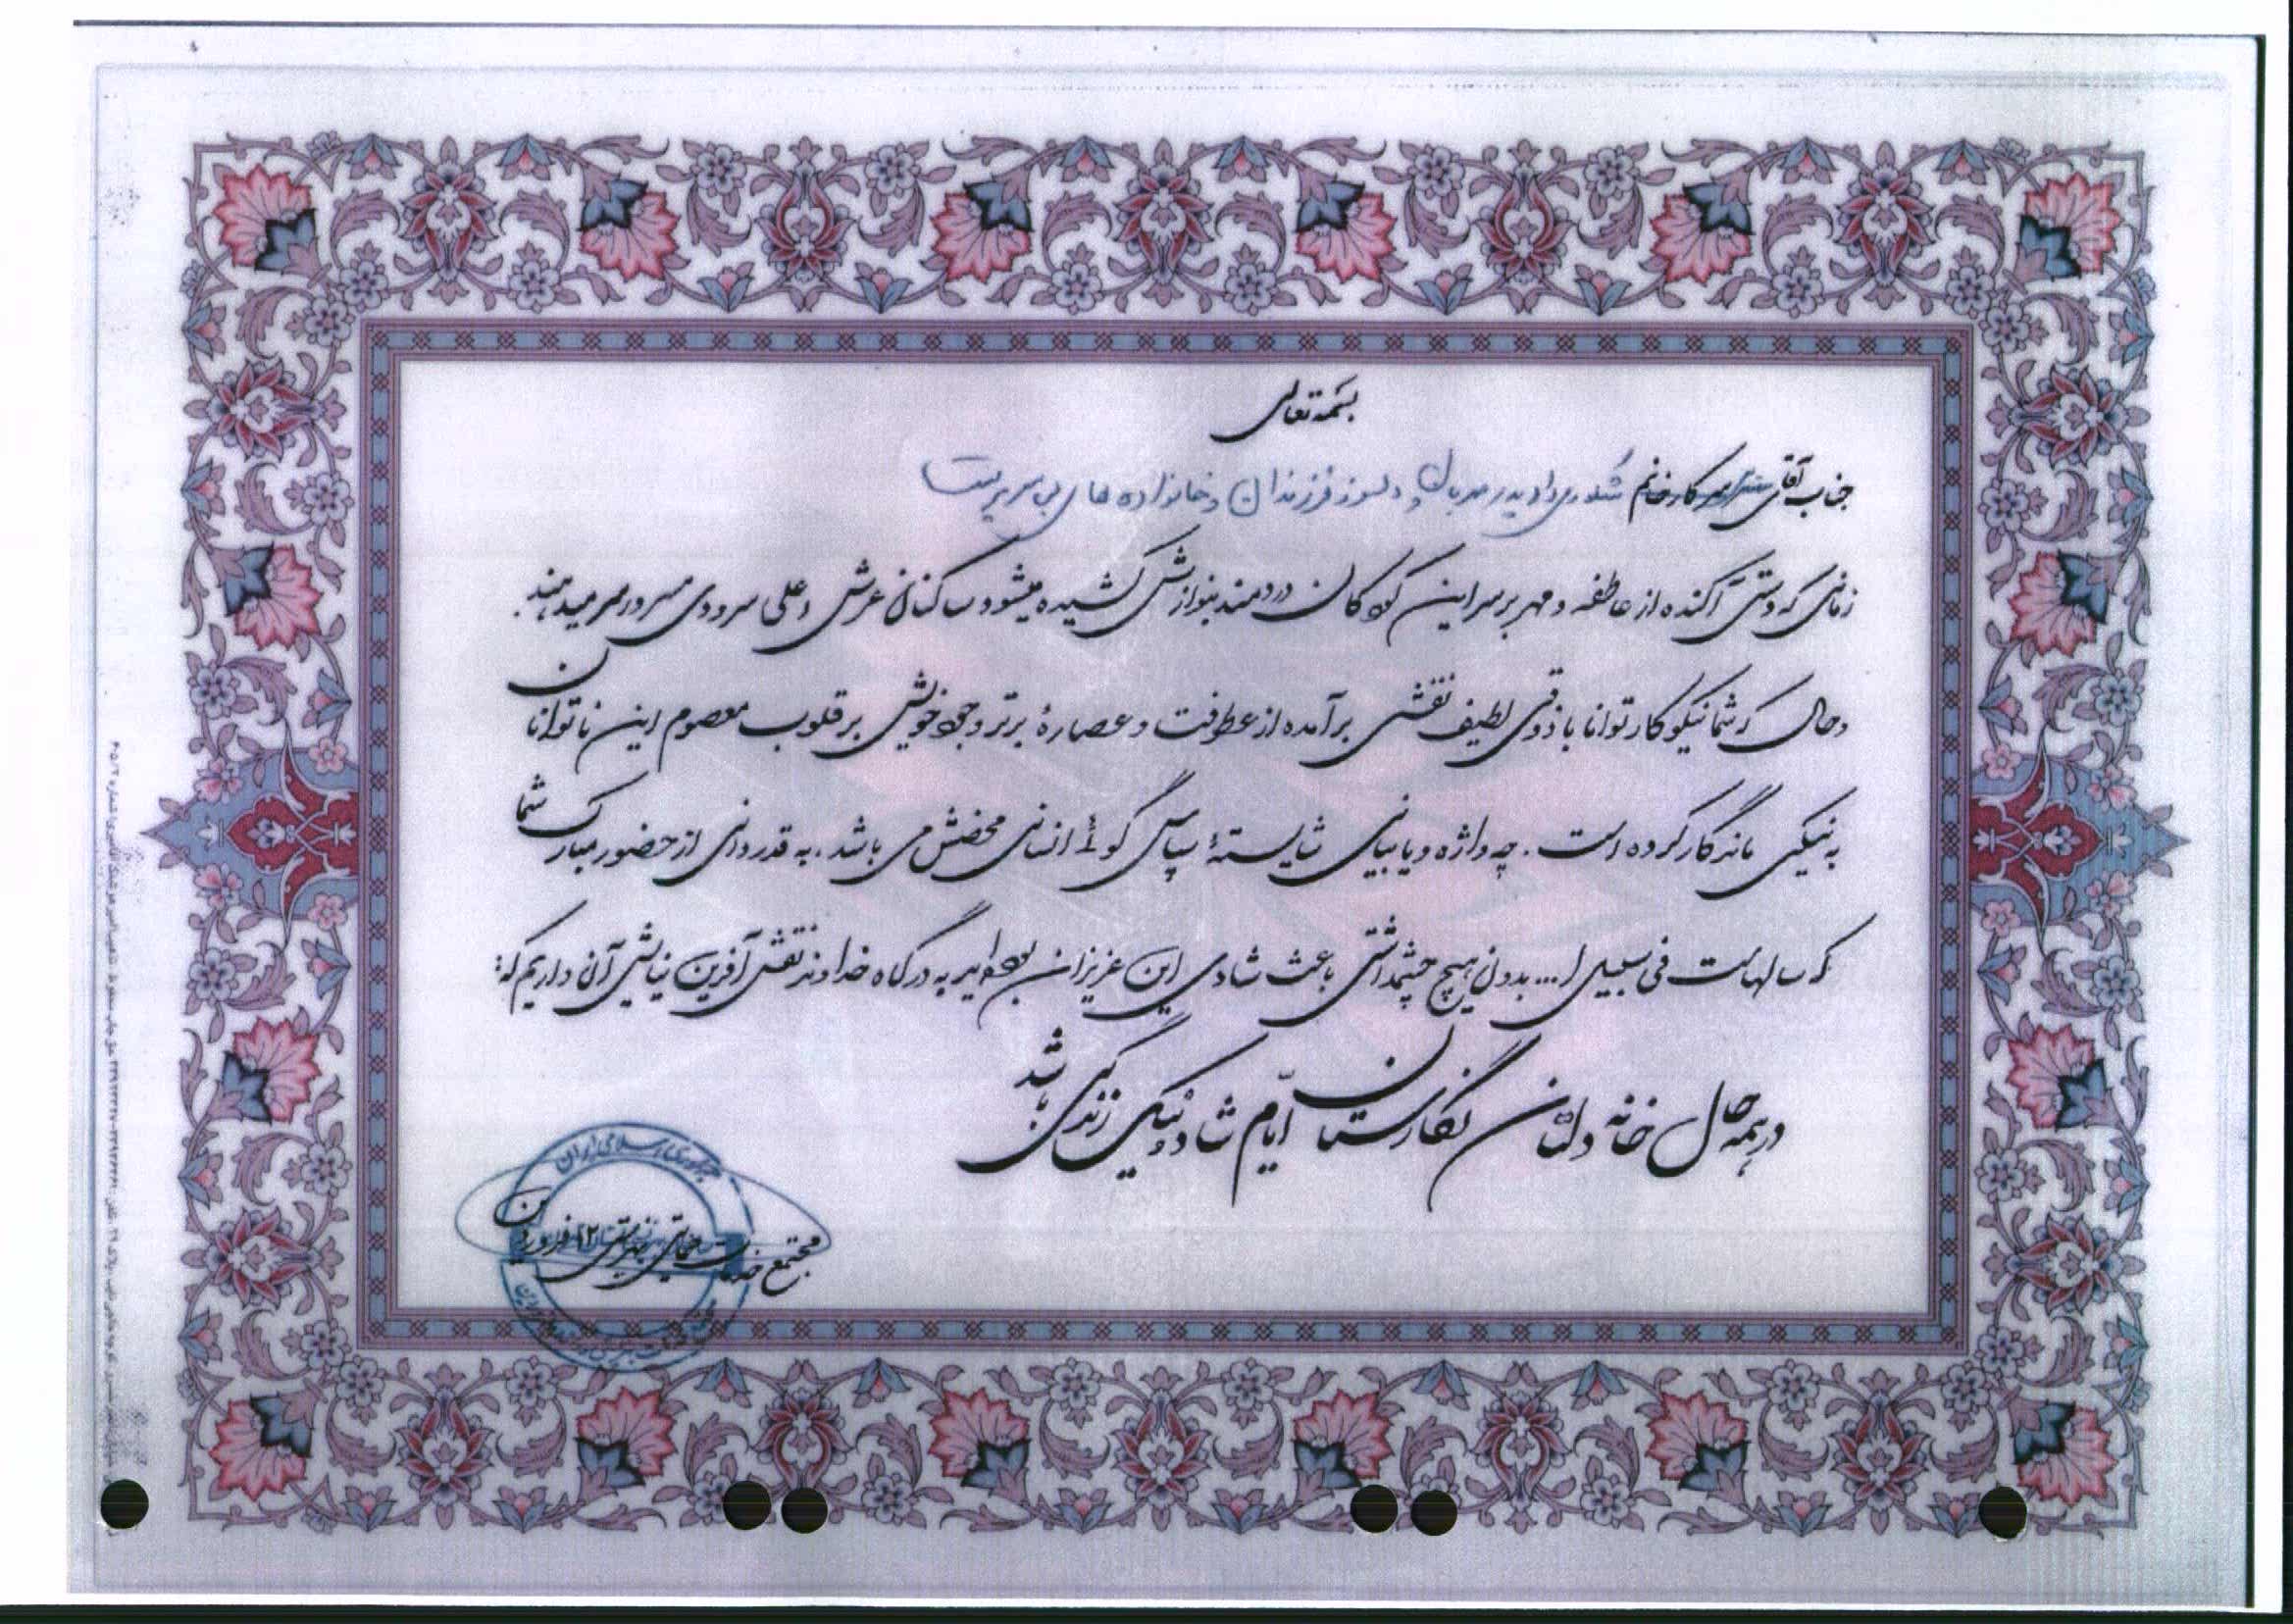 بسمه تعالی
جناب آقای سرکار خانم پدر مهربان و دلسوز فرزندان و خانواده های بی سرپرست
زمانی که دستی آکنده از عاطفه و مهر بر سر این کودکان دردمند بنوازش کشیده میشود ساکنان عرش اعلی سرودی مسرور سر میدهند.
و حال که شما نیکوکار توانا با ذوقی لطیف نقشی برآمده از عطوفت و عصاره برتر وجود خویش بر قلوب معصوم این ناتوانان
به نیکی ماندگار کرده است. چه واژه و یا بیانی شایستهٔ سپاس گوئی انسانی محضش می باشد. به قدردانی از حضور مبارک شما
که سالهاست فی سبیل ا... بدون هیچ چشمداشتی باعث شادی این عزیزان بوده اید به درگاه خداوند نقش آفرین نیایش آن داریم که:
در همه حال خانه دلتان نگارستان ایّام شاد و نیک زندگی باشد
جمهوری اسلامی ایران
مجتمع خدمات حمایتی بهزیستی ۱۲ فروردین